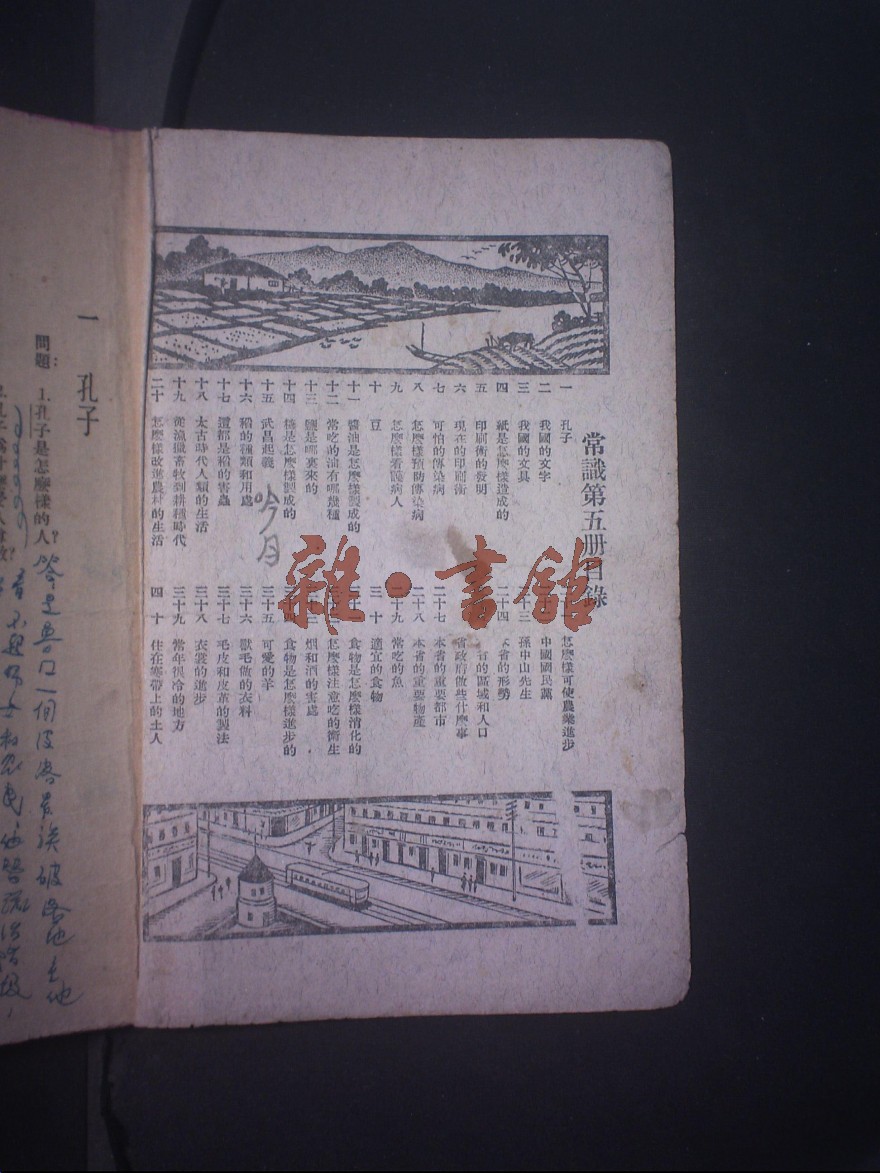 常識第五册目錄
一 孔子
二 我國的文字
三 我國的文具
四 紙是怎麼樣造成的
五 印刷術的發明
六 現在的印刷術
七 可怕的傳染病
八 怎麼樣預防傳染病
九 怎麼樣看護病人
十 豆
十一 醬油是怎麼樣製成的
十二 常吃的油有哪幾種
十三 鹽是哪裏來的
十四 糖是怎麼樣製成的
十五 武昌起義
十六 稻的種類和用處
十七 這都是稻的害蟲
十八 太古時代人類的生活
十九 從漁獵畜牧到耕種時代
二十 怎麼樣改進農村的生活
怎麼樣可使農業進步
中國國民黨
十三 孫中山先生
二十四 本省的形勢
的區域和人口
省政府做些什麼事
二十七 本省的重要都市
二十八 本省的重要物產
二十九 常吃的魚
三十 適宜的食物
食物是怎麼樣消化的
怎麼樣注意吃的衛生
烟和酒的害處
食物是怎麼樣進步的
三十五 可愛的羊
三十六 獸毛做的衣料
三十七 毛皮和皮革的製法
三十八 衣裳的進步
三十九 常年很冷的地方
四十 住在寒帶上的土人
吟月
雜·書館
一 孔子
問題：1.孔子是怎麼樣的人？